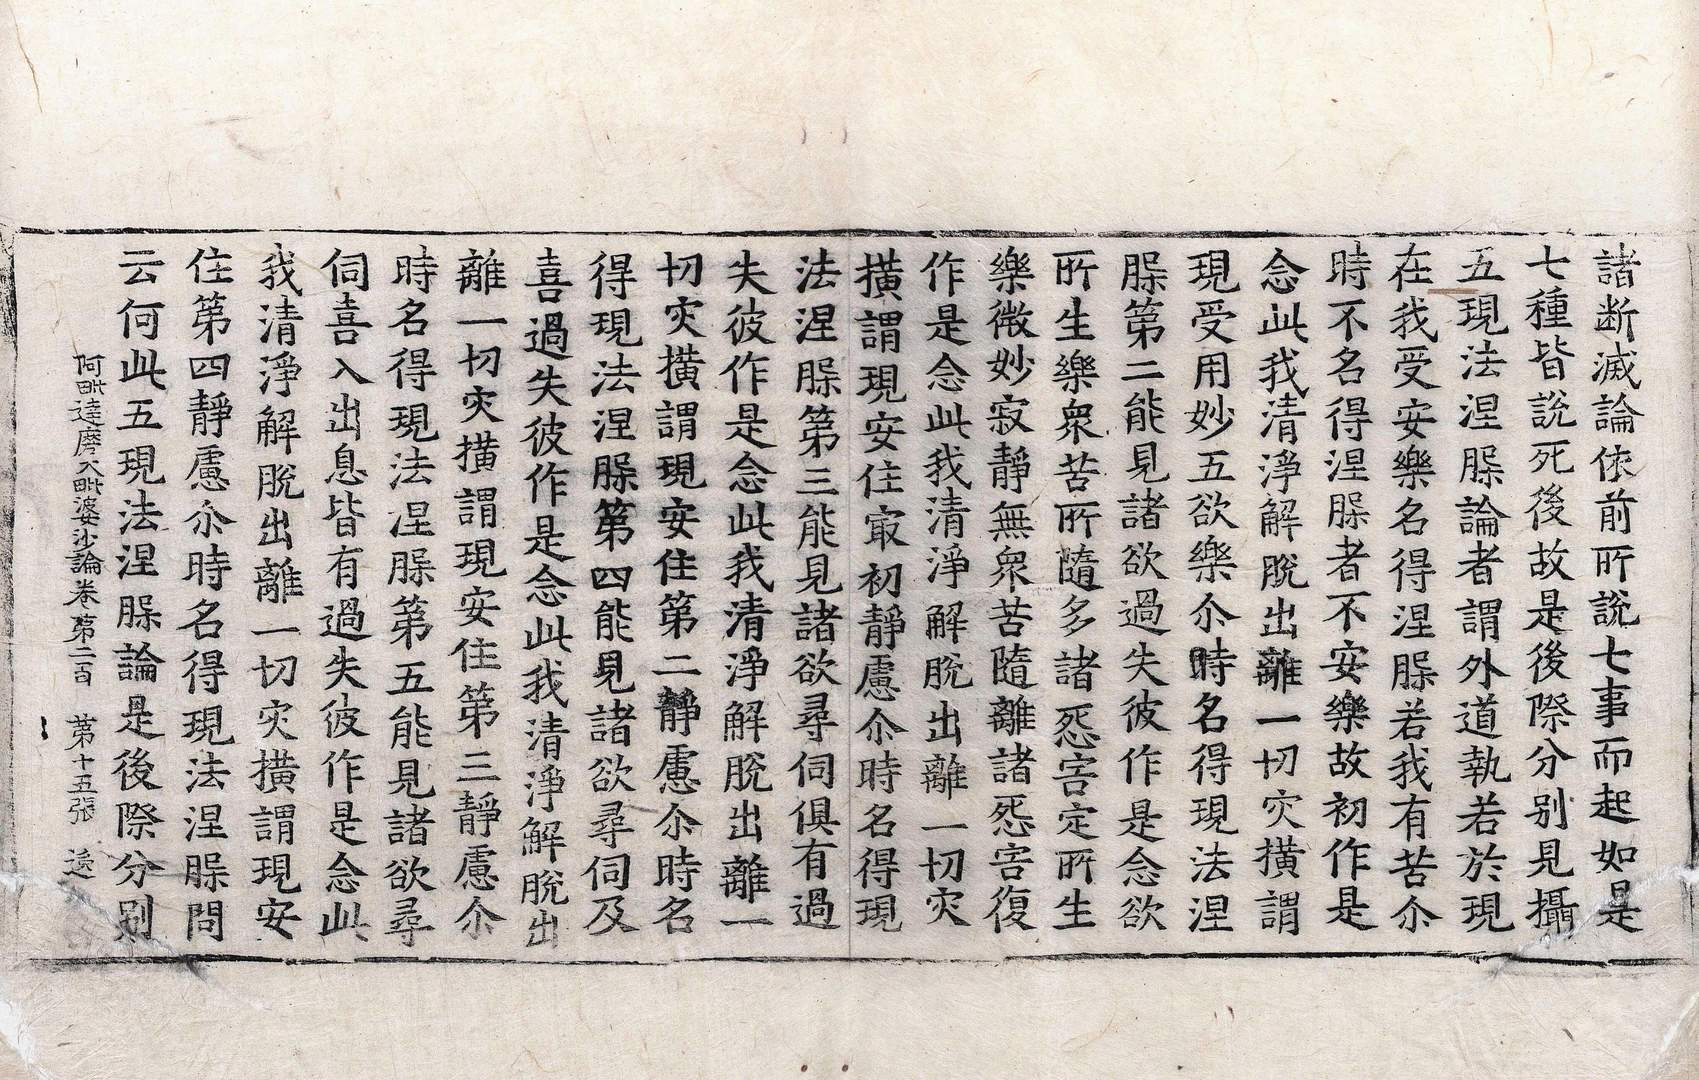 諸断滅論依前所說七事而起如是
七種皆說死後故是後際分别見攝
五現法涅脲論者謂外道執若於現
在我受安樂名得涅脲若我有苦尒
時不名得涅脲者不安樂故初作是
念此我清淨解脫出離一切灾橫謂
現受用妙五欲樂尒時名得現法涅
脲第二能見諸欲過失彼作是念欲
所生樂衆苦所隨多諸怨害定所生
樂微妙寂靜無衆苦隨離諸怨害復
作是念此我清淨解脫出離一切灾
橫謂現安住㝡初靜慮尒時名得現
法涅脲第三能見諸欲尋伺俱有過
失彼作是念此我清淨解脫出離一
切灾橫謂現安住第二靜慮尒時名
得現法涅脲第四能見諸欲尋伺及
喜過失彼作是念此我清淨解脫出
離一切灾橫謂現安住第三靜慮尒
時名得現法涅脲第五能見諸欲尋
伺喜入出息皆有過失彼作是念此
我清淨解脫出離一切灾橫謂現安
住第四靜慮尒時名得現法涅脲問
云何此五現法涅脲論是後際分别
阿毗達磨大毗婆沙論卷第二百 第十五張 逸